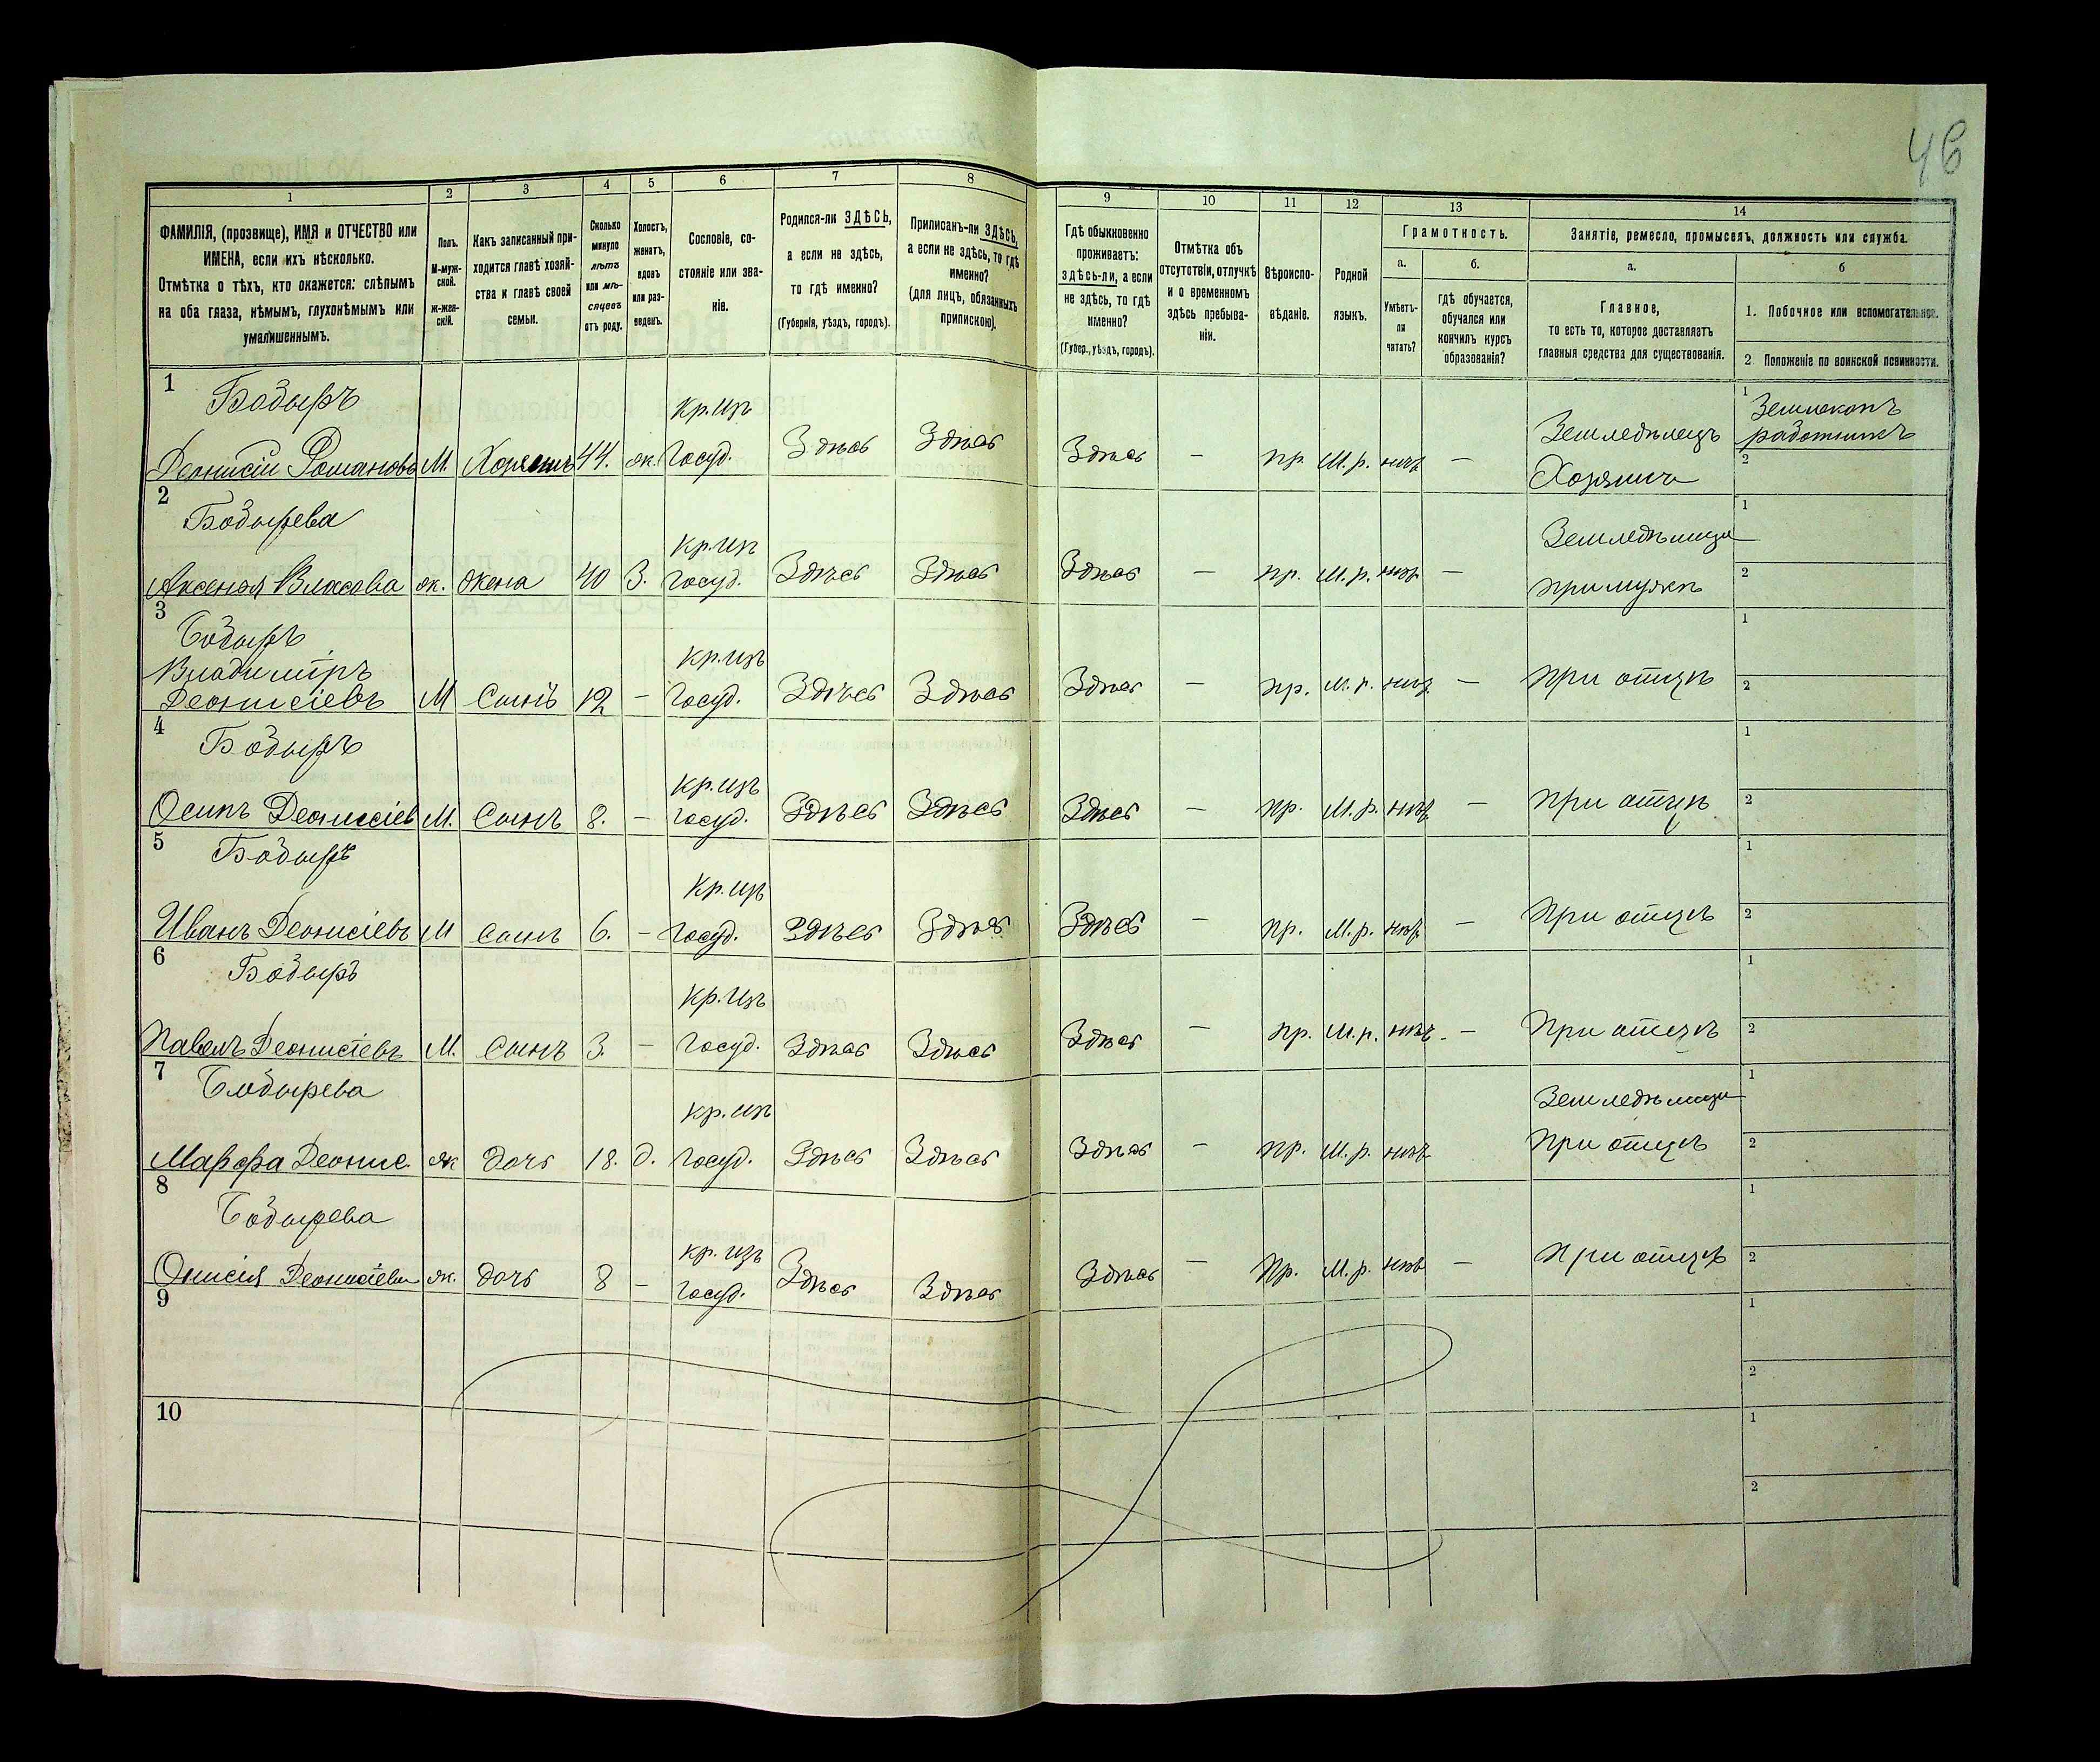 46
1 2 3 4 5 6 7 8 9 10 11 12 13 14
ФАМИЛІЯ, (прозвище), ИМЯ и ОТЧЕСТВО или
ИМЕНА, если ихъ нѣсколько.
Отмѣтка о тѣхъ, кто окажется: слѣпымъ
на оба глаза, нѣмымъ, глухонѣмымъ или
умалишеннымъ.
Полъ.
М-муж-
ской.
Ж-жен-
скій.
Какъ записанный при-
ходится главѣ хозяй-
ства и главѣ своей
семьи.
Сколько
минуло
лѣтъ
или мѣ-
сяцевъ
отъ роду.
Холостъ,
женатъ,
вдовъ
или раз-
веденъ.
Сословіе, со-
стояніе или зва-
ніе.
Родился-ли ЗДѢСЬ,
а если не здѣсь,
то гдѣ именно?
(Губернія, уѣздъ, городъ).
Приписанъ-ли ЗДѢСЬ,
а если не здѣсь, то гдѣ
именно?
(для лицъ, обязанныхъ
припискою).
Гдѣ обыкновенно
проживаетъ:
ЗДѢСЬ-ЛИ, а если
не здѣсь, то гдѣ
именно?
(Губер., уѣздъ, городъ).
Отмѣтка объ
отсутствіи, отлучкѣ
и о временномъ
здѣсь пребыва-
ніи.
Вѣроиспо-
вѣданіе.
Родной
языкъ.
Грамотность.
а.
Умѣетъ-
ли
читать?
б.
гдѣ обучается,
обучался или
кончилъ курсъ
образованія?
Занятіе, ремесло, промыселъ, должность или служба.
а.
Главное,
то есть то, которое доставляетъ
главныя средства для существованія.
б
1. Побочное или вспомогательное.
2. Положеніе по воинской повинности.
1 Бодыръ
Деонисій Романовъ М. Хозяинъ 44. ж. Кр. изъ
Госуд. Здѣсь Здѣсь Здѣсь — пр. М. р. нѣтъ — Земледѣлецъ
Хозяинъ 1 Землекопъ
работникъ
2
2 Бодырева
Аксенья Власова ж. жена 40 З. Кр. изъ
Госуд. Здѣсь Здѣсь Здѣсь — пр. М. р. нѣтъ —
при мужѣ 1
2
3 Бодыръ
Владиміръ
Деонисіевъ М Сынъ 12 — Кр. изъ
Госуд. Здѣсь Здѣсь Здѣсь — пр. М. р. нѣтъ — При отцѣ 1
2
4 Бодыръ
Осипъ Деонисіев М. Сынъ 8. — Кр. изъ
Госуд. Здѣсь Здѣсь Здѣсь — пр. М. р. нѣтъ — При отцѣ 1
2
5 Бодыръ
Иванъ Деонисіевъ М сынъ 6. — Кр. изъ
Госуд. Здѣсь Здѣсь Здѣсь — пр. М. р. нѣтъ — При отцѣ 1
2
6 Бодыръ
Павелъ Деонисіевъ М. Сынъ 3. — Кр. изъ
Госуд. Здѣсь Здѣсь Здѣсь — пр. М. р. нѣтъ — При отцѣ 1
2
7 Бодырева
Марфа Деонис. ж дочь 18. д. Кр. изъ
Госуд. Здѣсь Здѣсь Здѣсь — пр. М. р. нѣтъ
При отцѣ 1
2
8 Бодырева
Онисія Деонисіева ж. дочь 8 — Кр. изъ
Госуд. Здѣсь Здѣсь Здѣсь — Пр. М. р. нѣтъ — При отцѣ 1
2
9 1
2
10 1
2